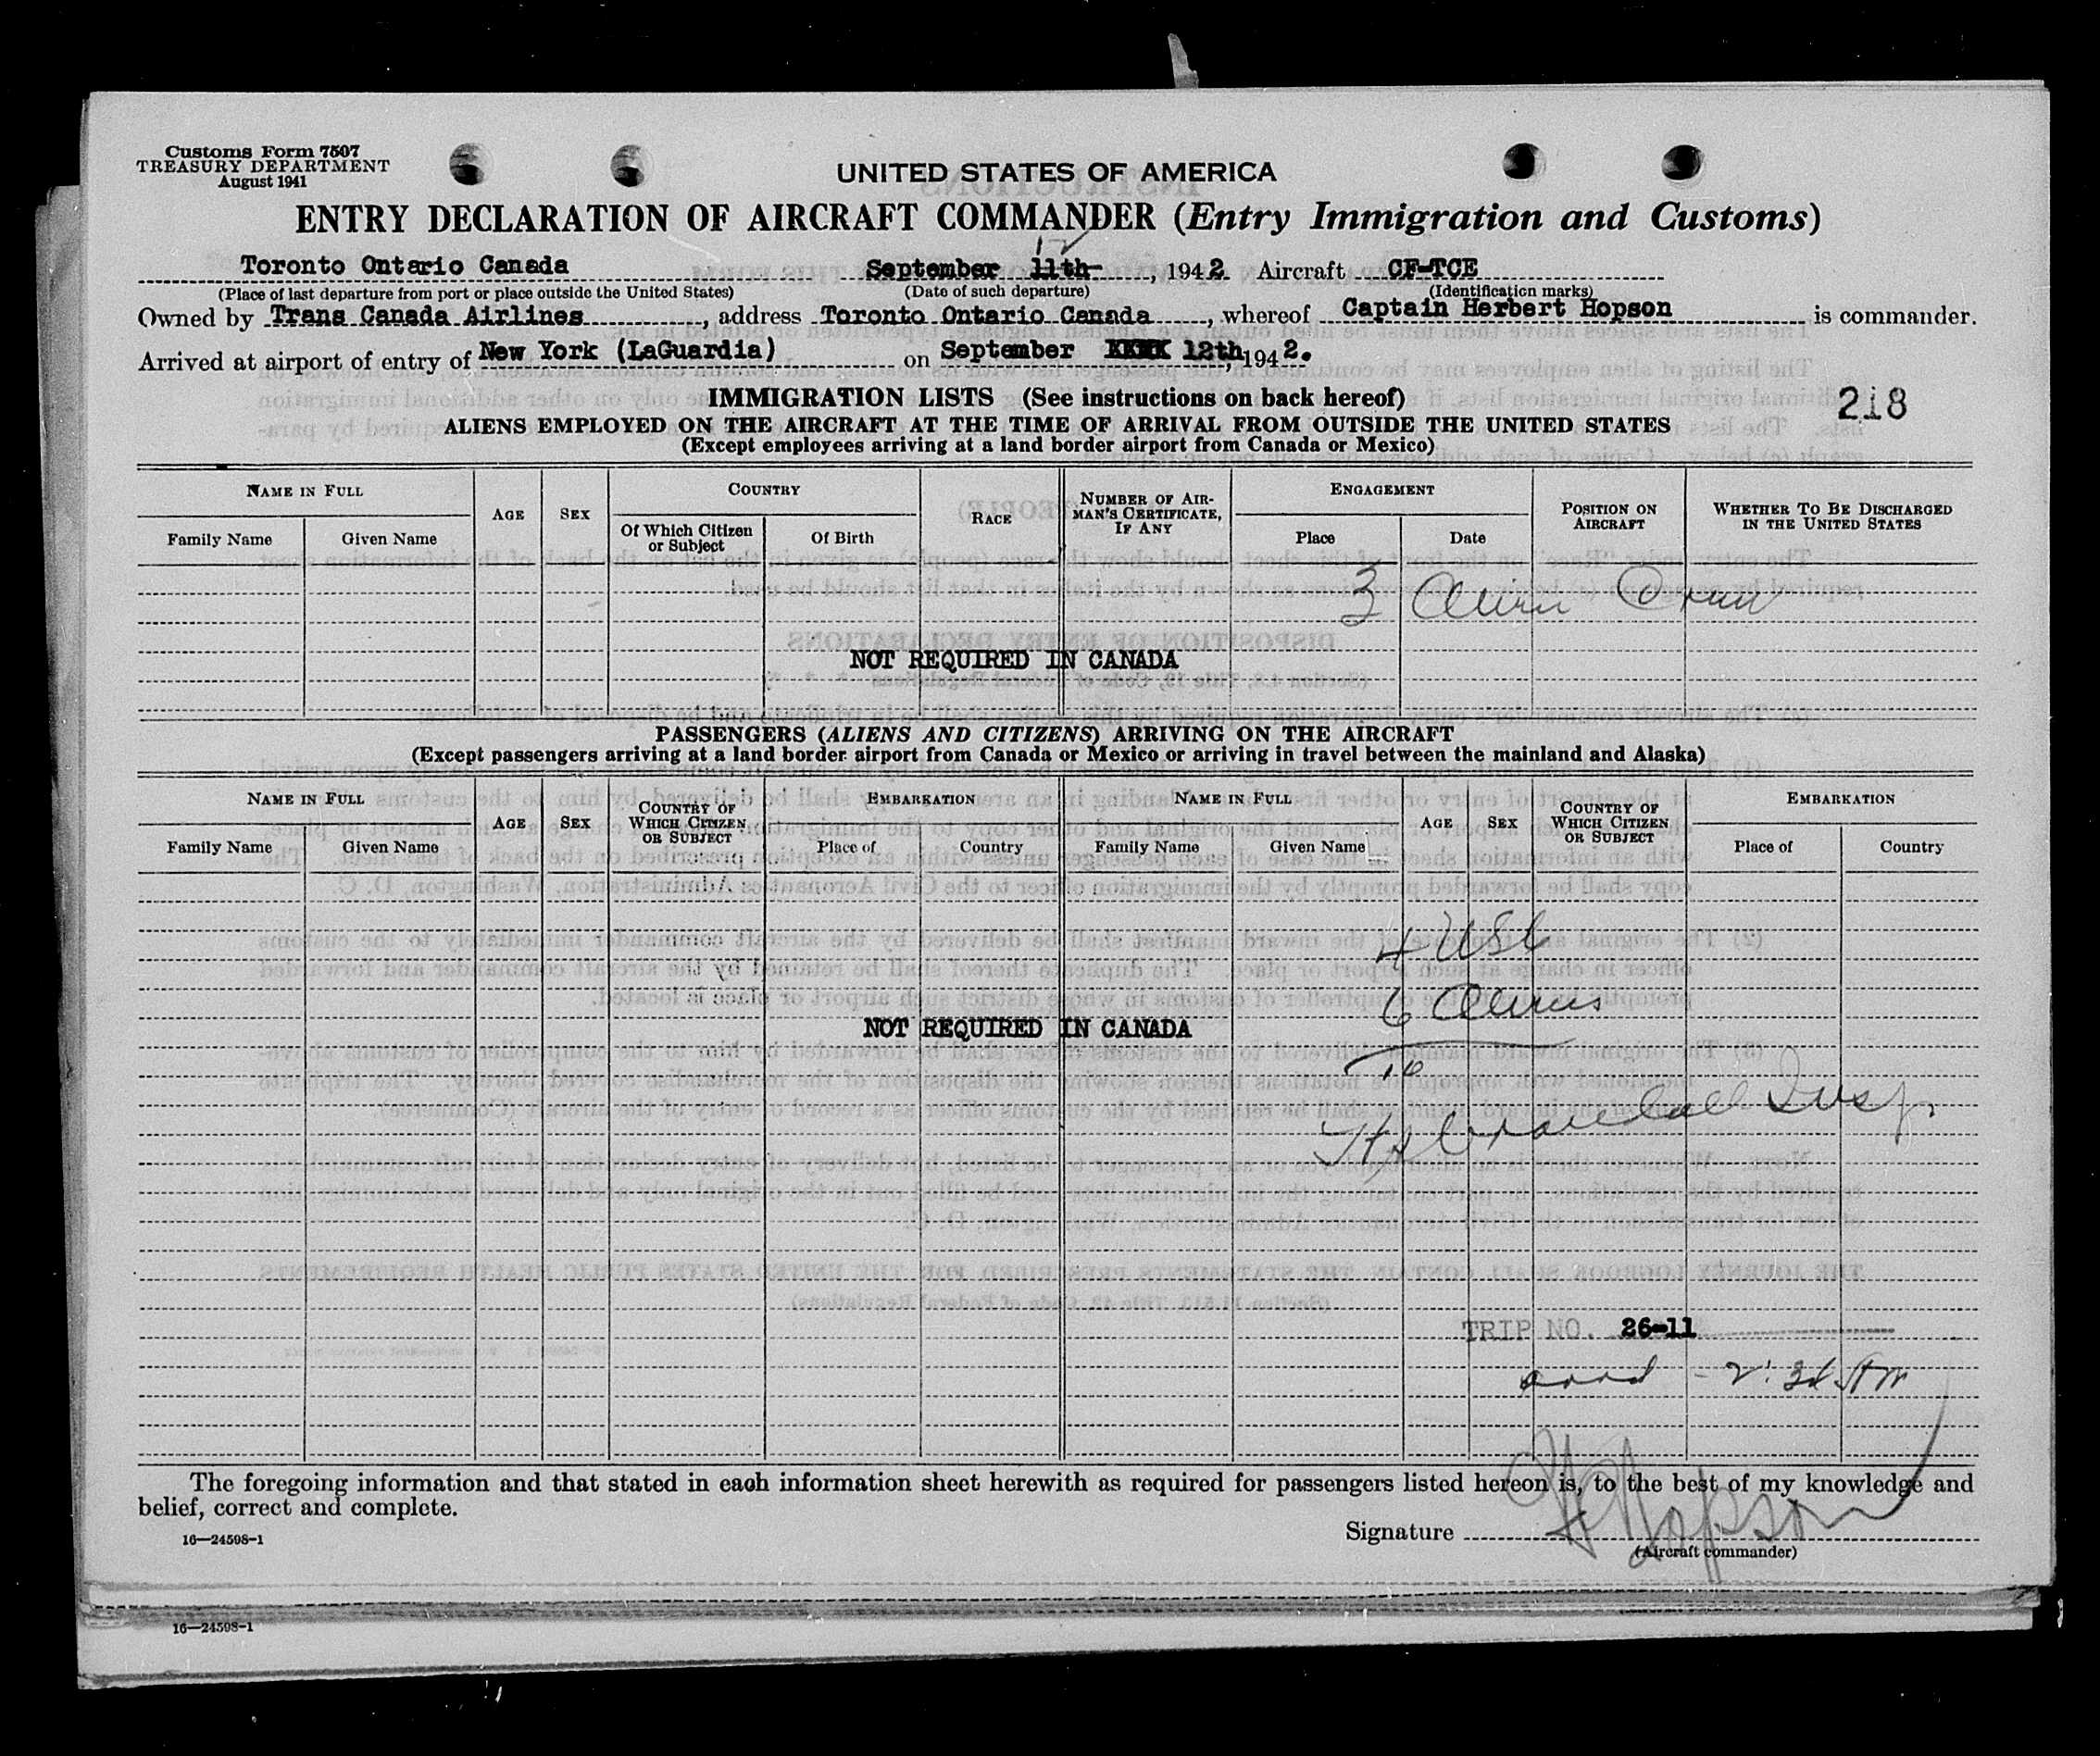 Customs Form 7507
TREASURY DEPARTMENT
August 1941
UNITED STATES OF AMERICA
ENTRY DECLARATION OF AIRCRAFT COMMANDER (Entry Immigration and Customs)
12
Toronto Ontario Canada September 11th, 1942 Aircraft CF-TCE
(Place of last departure from port or place outside the United States) (Date of such departure) (Identification marks)
Owned by Trans Canada Airlines, address Toronto Ontario Canada, whereof Captain Herbert Hopson is commander.
Arrived at airport of entry of New York (LaGuardia) on September XXXX 12th, 1942.
IMMIGRATION LISTS (See instructions on back hereof)
218
ALIENS EMPLOYED ON THE AIRCRAFT AT THE TIME OF ARRIVAL FROM OUTSIDE THE UNITED STATES
(Except employees arriving at a land border airport from Canada or Mexico)
NAME IN FULL AGE SEX COUNTRY RACE NUMBER OF AIRMAN'S CERTIFICATE, IF ANY ENGAGEMENT POSITION ON AIRCRAFT WHETHER TO BE DISCHARGED IN THE UNITED STATES
Family Name Given Name Of Which Citizen or Subject Of Birth Place Date
3 Alien Crew
NOT REQUIRED IN CANADA
PASSENGERS (ALIENS AND CITIZENS) ARRIVING ON THE AIRCRAFT
(Except passengers arriving at a land border airport from Canada or Mexico or arriving in travel between the mainland and Alaska)
NAME IN FULL AGE SEX COUNTRY OF WHICH CITIZEN OR SUBJECT EMBARKATION NAME IN FULL AGE SEX COUNTRY OF WHICH CITIZEN OR SUBJECT EMBARKATION
Family Name Given Name Place of Country Family Name Given Name Place of Country
4 USC
6 Aliens
NOT REQUIRED IN CANADA
10
Insp
TRIP NO. 26-11
H Hopson
The foregoing information and that stated in each information sheet herewith as required for passengers listed hereon is, to the best of my knowledge and
belief, correct and complete.
Signature
16—24598-1
(Aircraft commander)
16—24598-1